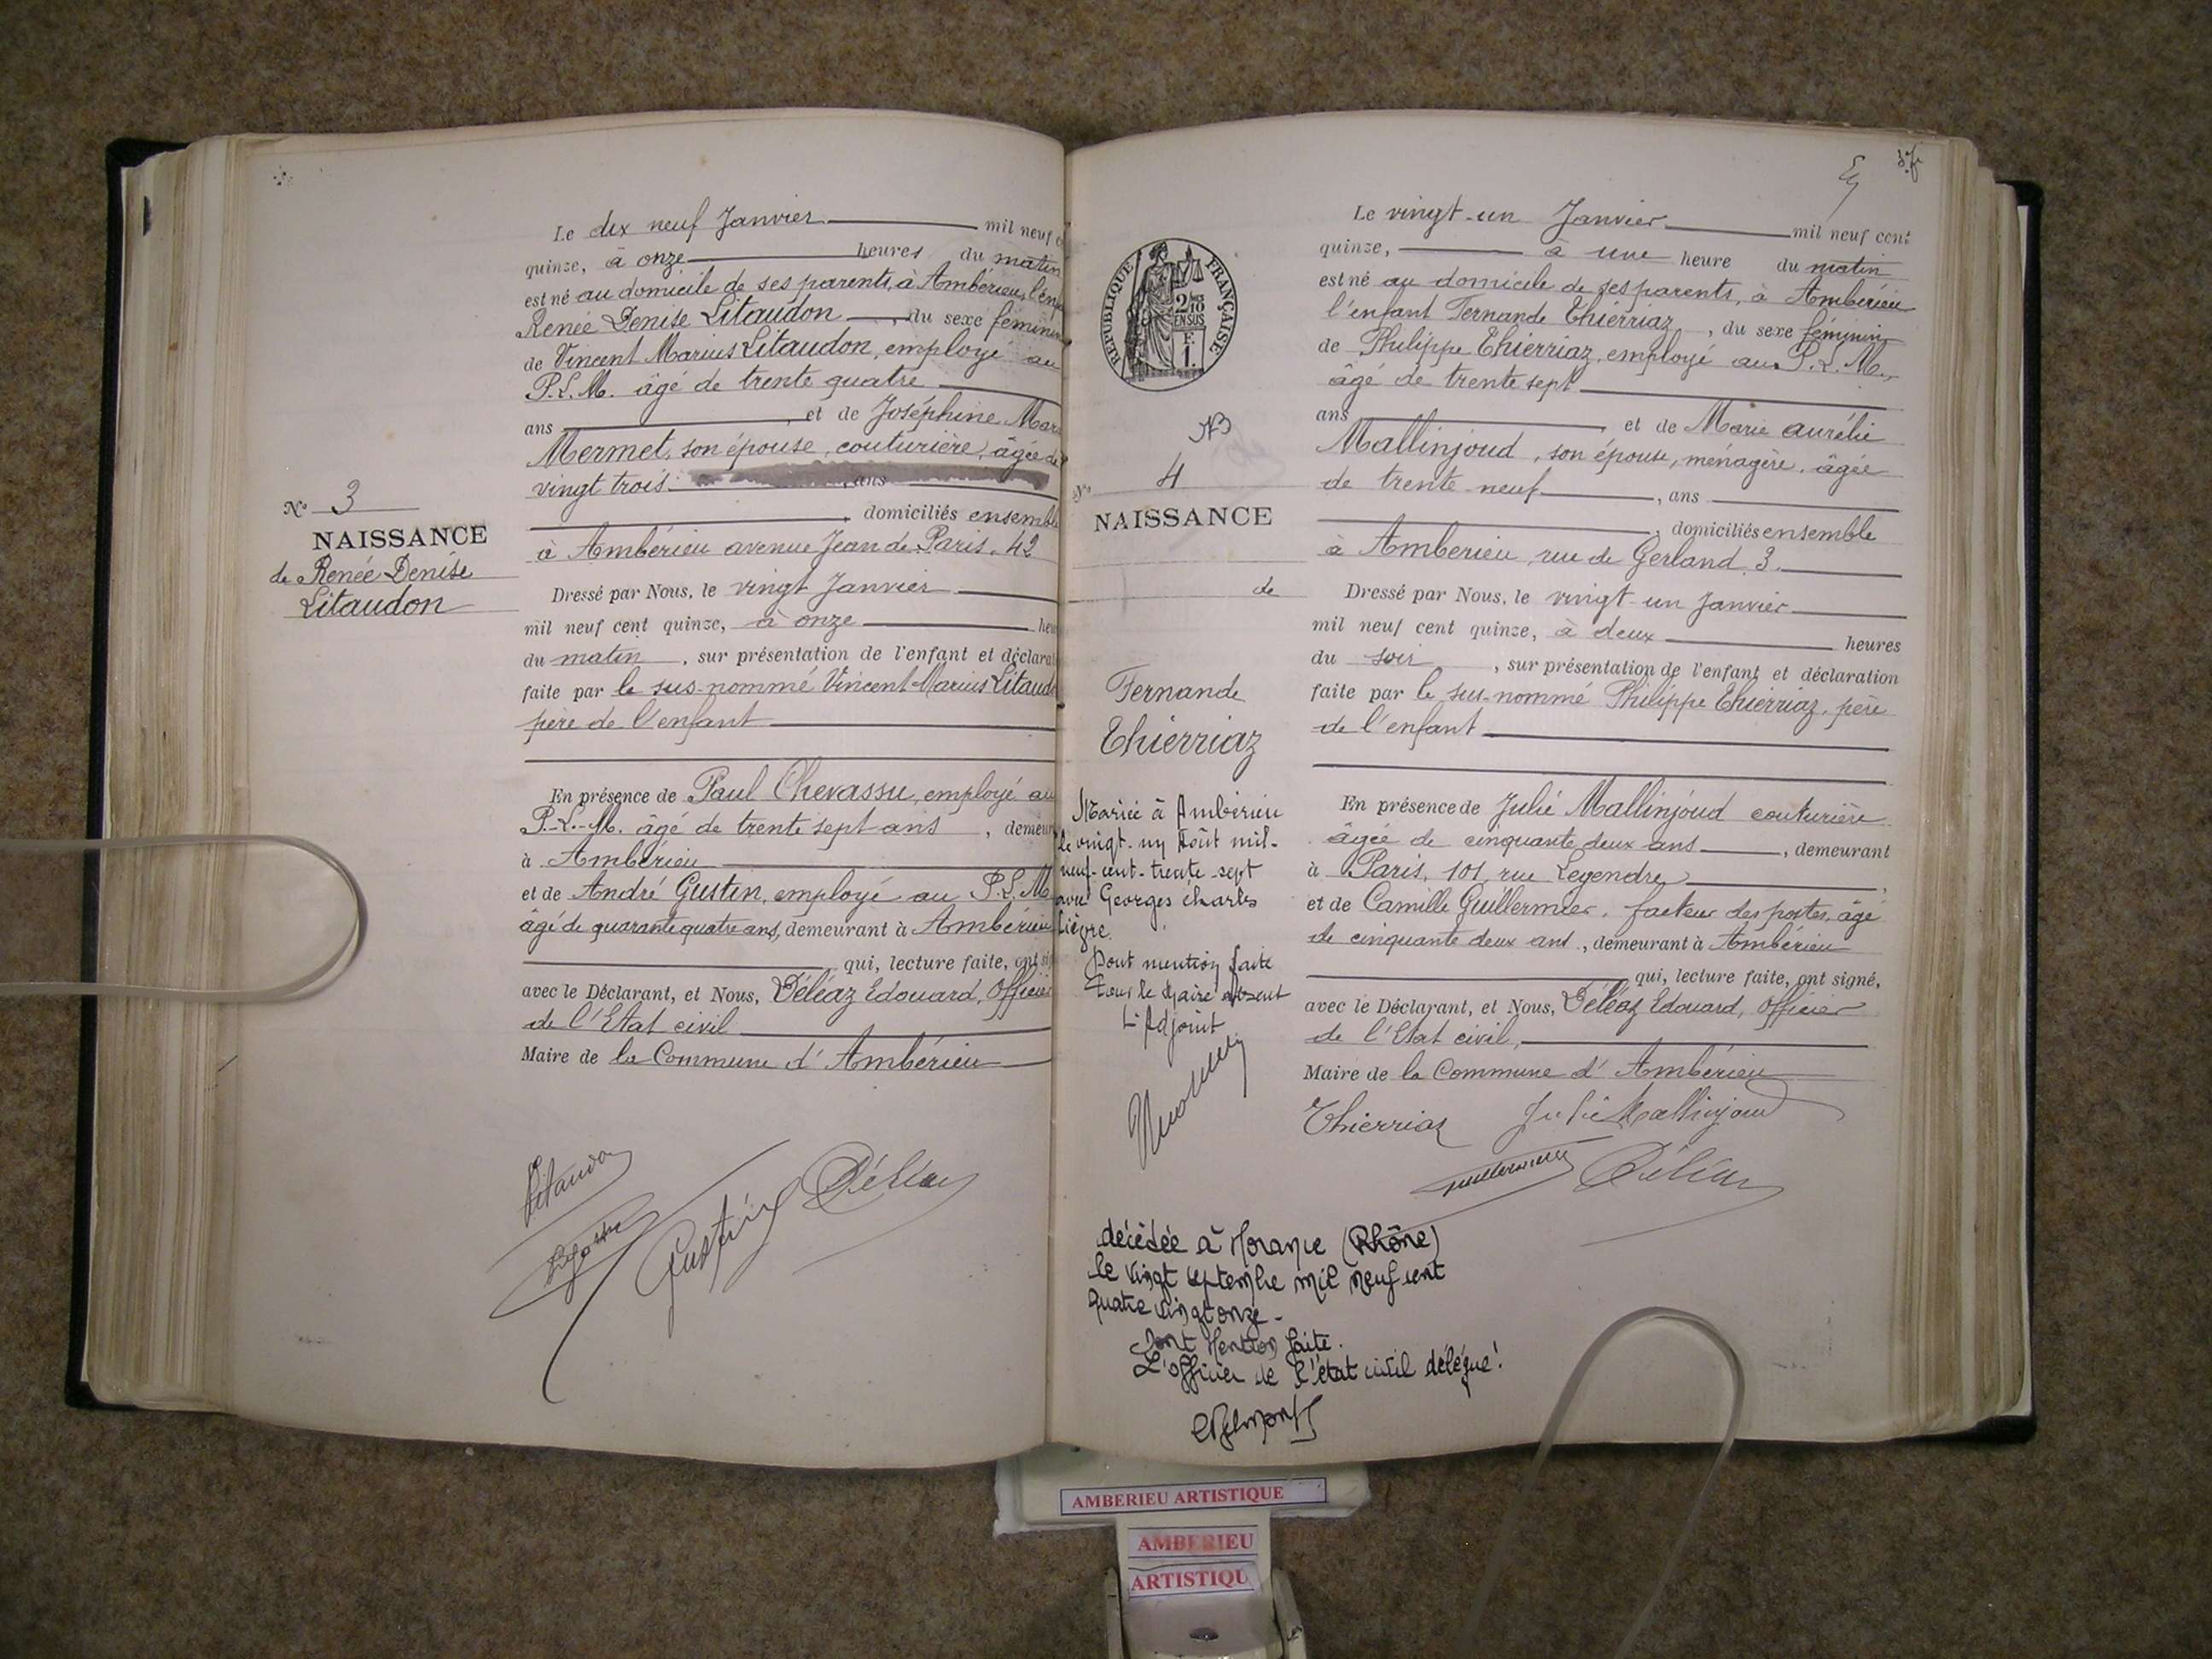 Le dix neuf Janvier mil neuf
quinze, à onze heures du matin
est né au domicile de ses parents, à Ambérieu,
Renée Denise Litaudon, du sexe féminin
de Vincent Marius Litaudon, employé au
P.L.M. âgé de trente quatre
ans et de Joséphine
Mermet, son épouse, couturière, âgée de
vingt trois ans
domiciliés ensemble
à Ambérieu avenue Jean de Paris, 42
Dressé par Nous, le vingt Janvier
mil neuf cent quinze, à onze
du matin, sur présentation de l'enfant et
faite par le sus-nommé Vincent Marius
père de l'enfant
En présence de Paul Chevassu, employé au
P.-L.-M. âgé de trente sept ans,
à Ambérieu
et de André Gustin, employé au P.L.M
âgé de quarante quatre ans, demeurant à Ambérieu
qui, lecture faite, ont
avec le Déclarant, et Nous, Déléaz Edouard, Officier
de l'Etat civil
Maire de la Commune d'Ambérieu
N° 3
NAISSANCE
de Renée Denise
Litaudon
Litaudon
Gustin Déléaz
Le vingt-un Janvier mil neuf cent
quinze, à une heure du matin
est né au domicile de ses parents, à Ambérieu
l'enfant Fernande Thierriaz, du sexe féminin
de Philippe Thierriaz, employé au P.L.M.,
âgé de trente sept
ans et de Marie aurélie
Mallinjoud, son épouse, ménagère, âgée
de trente-neuf, ans
, domiciliés ensemble
à Amberieu, rue de Gerland, 3.
Dressé par Nous, le vingt-un Janvier
mil neuf cent quinze, à deux heures
du soir, sur présentation de l'enfant et déclaration
faite par le sus-nommé Philippe Thierriaz, père
de l'enfant
En présence de Julie Mallinjoud couturière
âgée de cinquante deux ans, demeurant
à Paris, 101, rue Legendre,
et de Camille Guillermier, facteur des postes, âgé
de cinquante deux ans, demeurant à Ambérieu
qui, lecture faite, ont signé,
avec le Déclarant, et Nous, Déléaz Edouard, Officier
de l'Etat civil,
Maire de la Commune d'Ambérieu
Thierriaz Julie Mallinjoud
Guillermier Déléaz
RÉPUBLIQUE FRANÇAISE
2/10
EN SUS
F.
1.
N° 4
NAISSANCE
de
Fernande
Thierriaz
Mariée à Ambérieu
le vingt-un Août mil-
neuf-cent-trente-sept
avec Georges Charles
Lièvre.
Dont mention faite
Pour le Maire absent
L'Adjoint
décédée à Morance (Rhône)
le vingt septembre mil neuf cent
quatre vingt onze-
Dont Mention faite.
L'officier de l'état civil délégué.
AMBERIEU ARTISTIQUE
AMBERIEU
ARTISTIQU